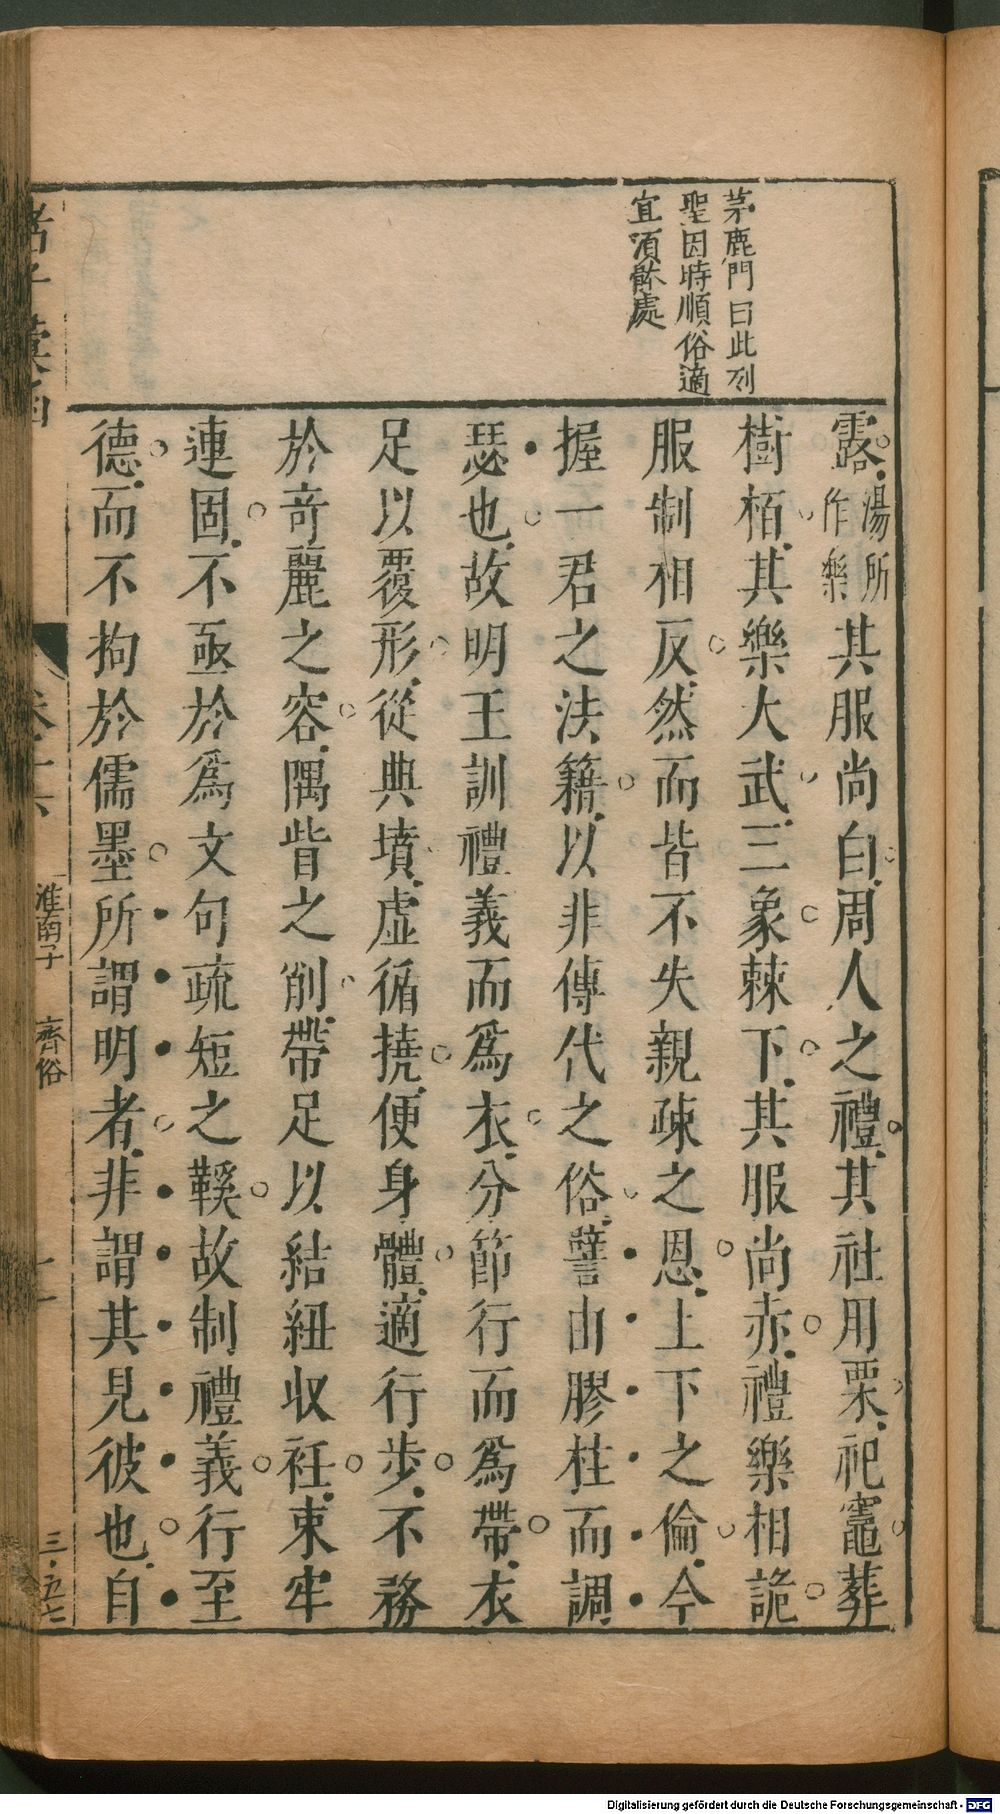 茅鹿門曰此列
聖因時順俗適
宜須骵處
露湯所作樂其服尚白周人之禮其社用栗祀竈葬
樹栢其樂大武三象棘下其服尚赤禮樂相詭
服制相反然而皆不失親疎之恩上下之倫今
握一君之法籍以非傳代之俗譬由膠柱而調
瑟也故明王訓禮義而爲衣分節行而爲帶衣
足以覆形從典墳虛循撓便身體適行步不務
於竒麗之容隅眥之削帶足以結紐収衽束牢
連固不亟於爲文句疏短之鞵故制禮義行至
德而不拘於儒墨所謂明者非謂其見彼也自
諸子彚函
卷十六
淮南子
齊俗
十一
三·五七
Digitalisierung gefördert durch die Deutsche Forschungsgemeinschaft - DFG